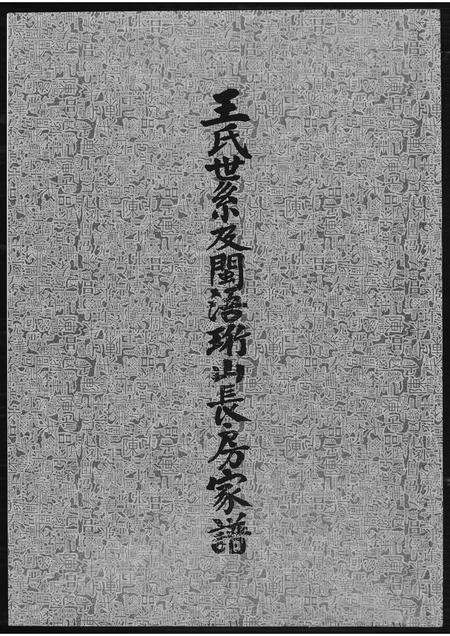 王氏世系及閩浯珩山長房家譜